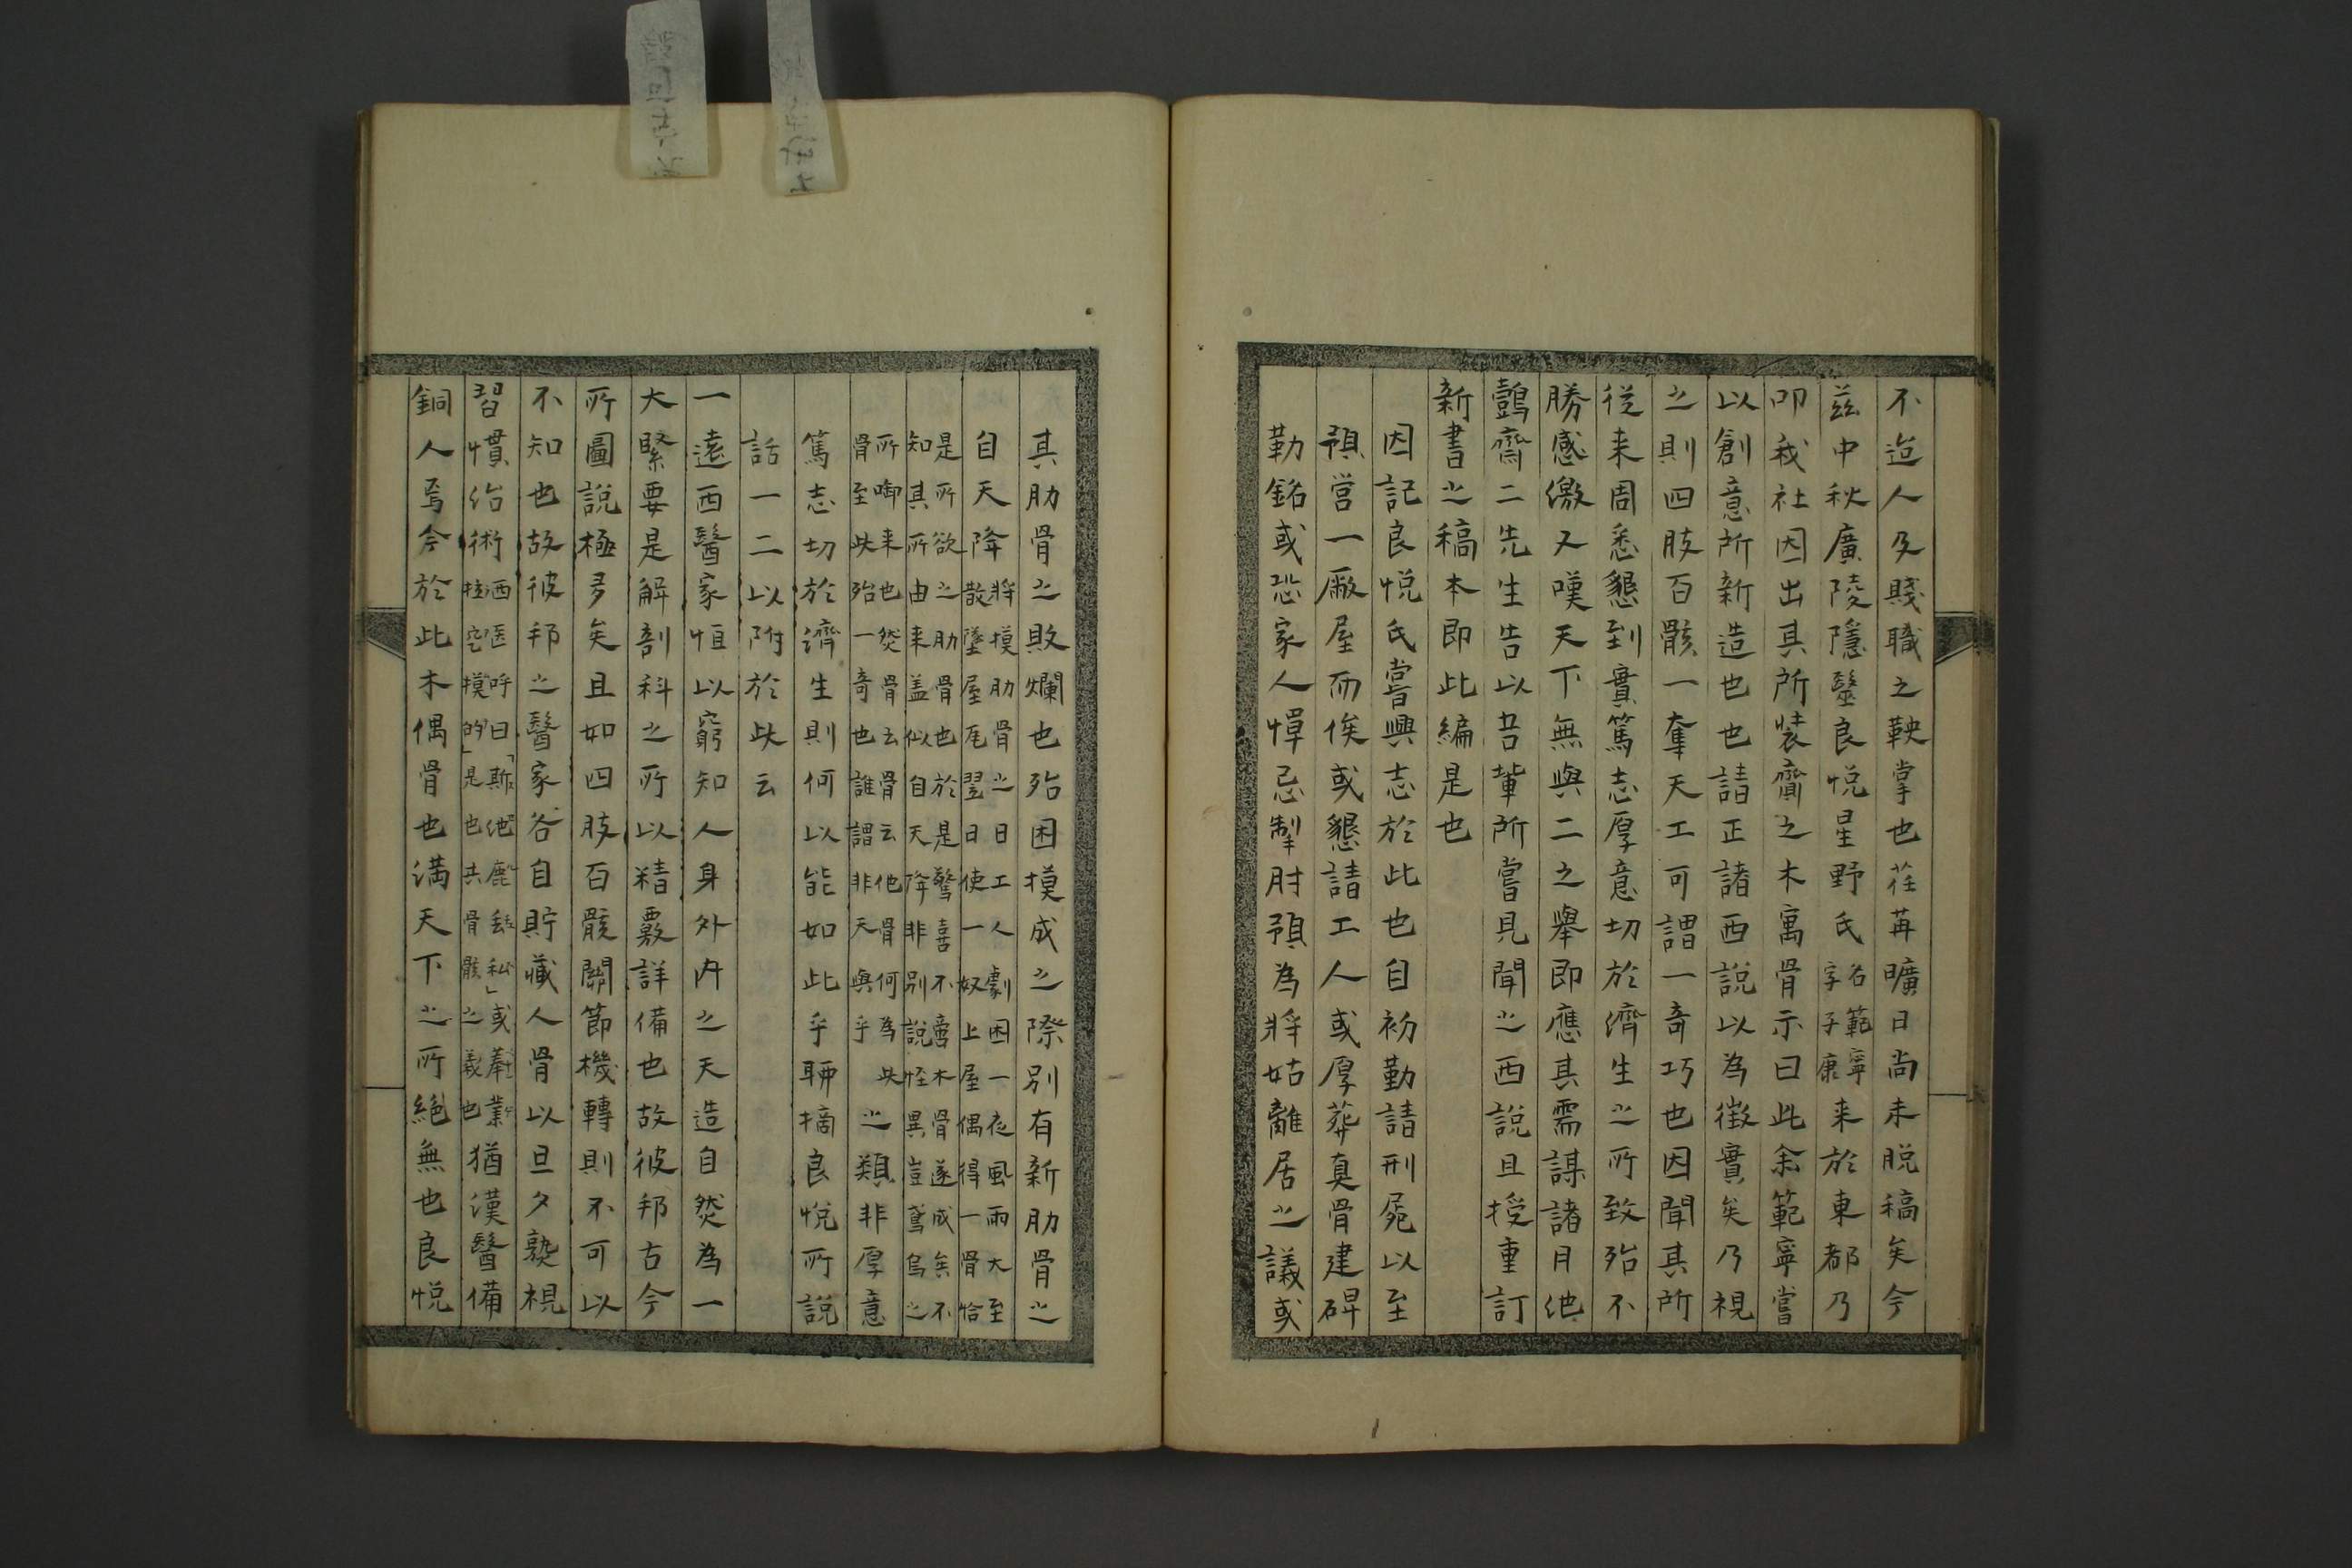 不迨人及賤職之鞅掌也荏苒曠日尚未脱稿矣今
茲中秋廣陵隱毉良悅星野氏名範寧字子康来於東都乃
叩我社因出其所裝齎之木寓骨示曰此余範寧嘗
以創意所新造也也請正諸西說以為徴實矣乃視
之則四肢百骸一奪天工可謂一奇巧也因聞其所
従来周悉懇到實篤志厚意切於濟生之所致殆不
勝感激又嘆天下無與二之舉即應其需謀諸月池
鷧齋二先生告以吾軰所嘗見聞之西說且授重訂
新書之稿本即此編是也
因記良悅氏嘗興志於此也自初勤請刑屍以至
預営一廠屋而俟或懇請工人或厚葬真骨建碑
勒銘或恐家人憚忌掣肘預為将姑離居之議或
其肋骨之敗爛也殆困摸成之際別有新肋骨之
自天降将摸肋骨之日工人劇困一夜風雨大至散墜屋瓦翌日使一奴上屋偶得一骨恰
是所欲之肋骨也於是驚喜不啻木骨遂成矣不知其所由来盖似自天降非別說怪異豈鳶烏之
所啣来也然骨云骨云他骨何為此骨至此殆一奇也誰謂非天與乎之類非厚意
篤志切於濟生則何以能如此乎聊摘良悅所說
話一二以附於此云
一遠西醫家恒以窮知人身外内之天造自然為一
大緊要是解剖科之所以精覈詳備也故彼邦古今
所圖說極多矣且如四肢百骸關節機轉則不可以
不知也故彼邦之醫家各自貯藏人骨以旦夕熟視
習慣治術西医呼曰「斯池鹿私」或蓁業挂空摸的」是也共骨骸之義也猶漢醫備
銅人焉今於此木偶骨也満天下之所絶無也良悅